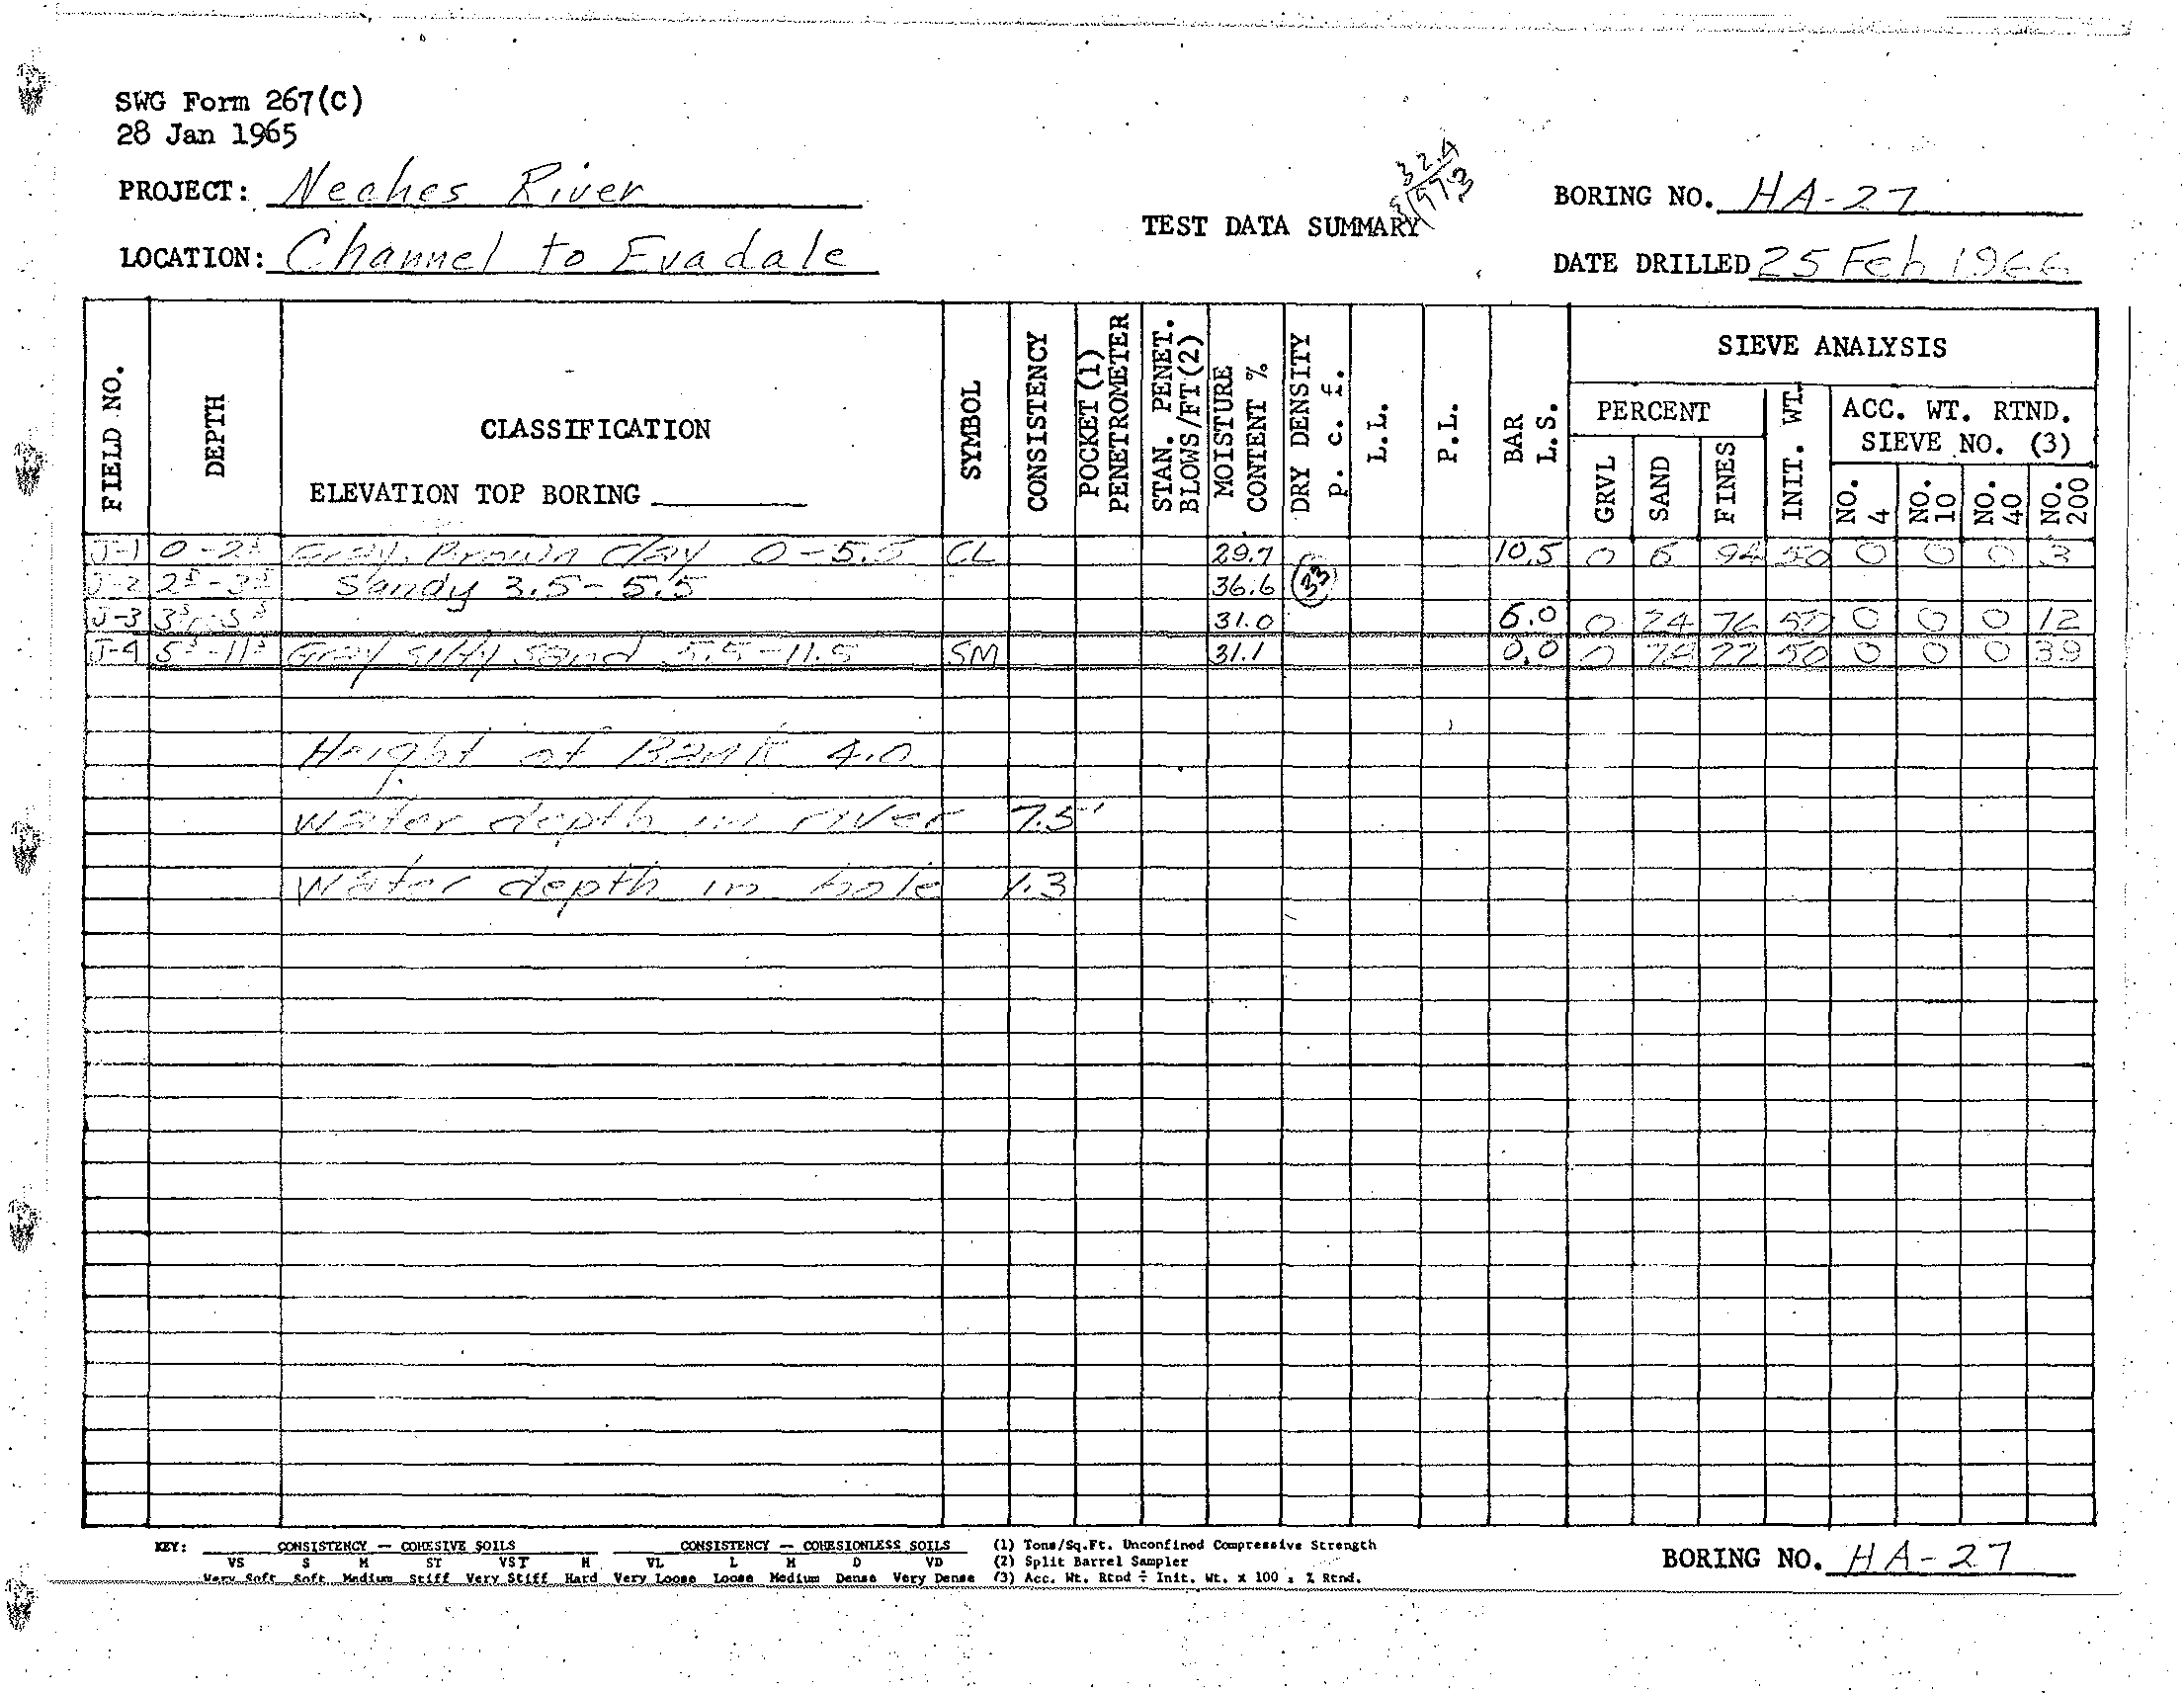 SWG Form 267(C)
28 Jan 1965
PROJECT: Neches River
LOCATION: Channel to Evadale
TEST DATA SUMMARY
324
BORING NO. HA-27
DATE DRILLED 25 Feb 1966
FIELD NO.
DEPTH
CLASSIFICATION
ELEVATION TOP BORING
SYMBOL
CONSISTENCY
POCKET (1) PENETROMETER
STAN. PENET. BLOWS/FT (2)
MOISTURE CONTENT %
DRY DENSITY p. c. f.
L.L.
P.L.
BAR L.S.
SIEVE ANALYSIS
PERCENT
GRVL
SAND
FINES
INIT. WT.
ACC. WT. RTND.
SIEVE NO. (3)
NO. 4
NO. 10
NO. 40
NO. 200
J-1 0-2⁵ Gray, Brown Clay 0-5.5 CL 29.7 10.5 0 6 94 50 0 0 0 3
J-2 2⁵-3⁵ Sandy 3.5-5.5 36.6 33
J-3 3⁵-5⁵ 31.0 6.0 0 24 76 50 0 0 0 12
J-4 5⁵-11⁵ Gray silty sand 5.5-11.5 SM 31.1 0.0 0 78 22 50 0 0 0 39
Height of Bank 4.0
Water depth in river 7.5'
Water depth in hole 1.3
KEY: CONSISTENCY — COHESIVE SOILS CONSISTENCY — COHESIONLESS SOILS (1) Tons/Sq.Ft. Unconfined Compressive Strength
VS S M ST VST H VL L M D VD (2) Split Barrel Sampler
Very Soft Soft Medium Stiff Very Stiff Hard Very Loose Loose Medium Dense Very Dense (3) Acc. Wt. Rtnd ÷ Init. Wt. x 100 = % Rtnd.
BORING NO. HA-27